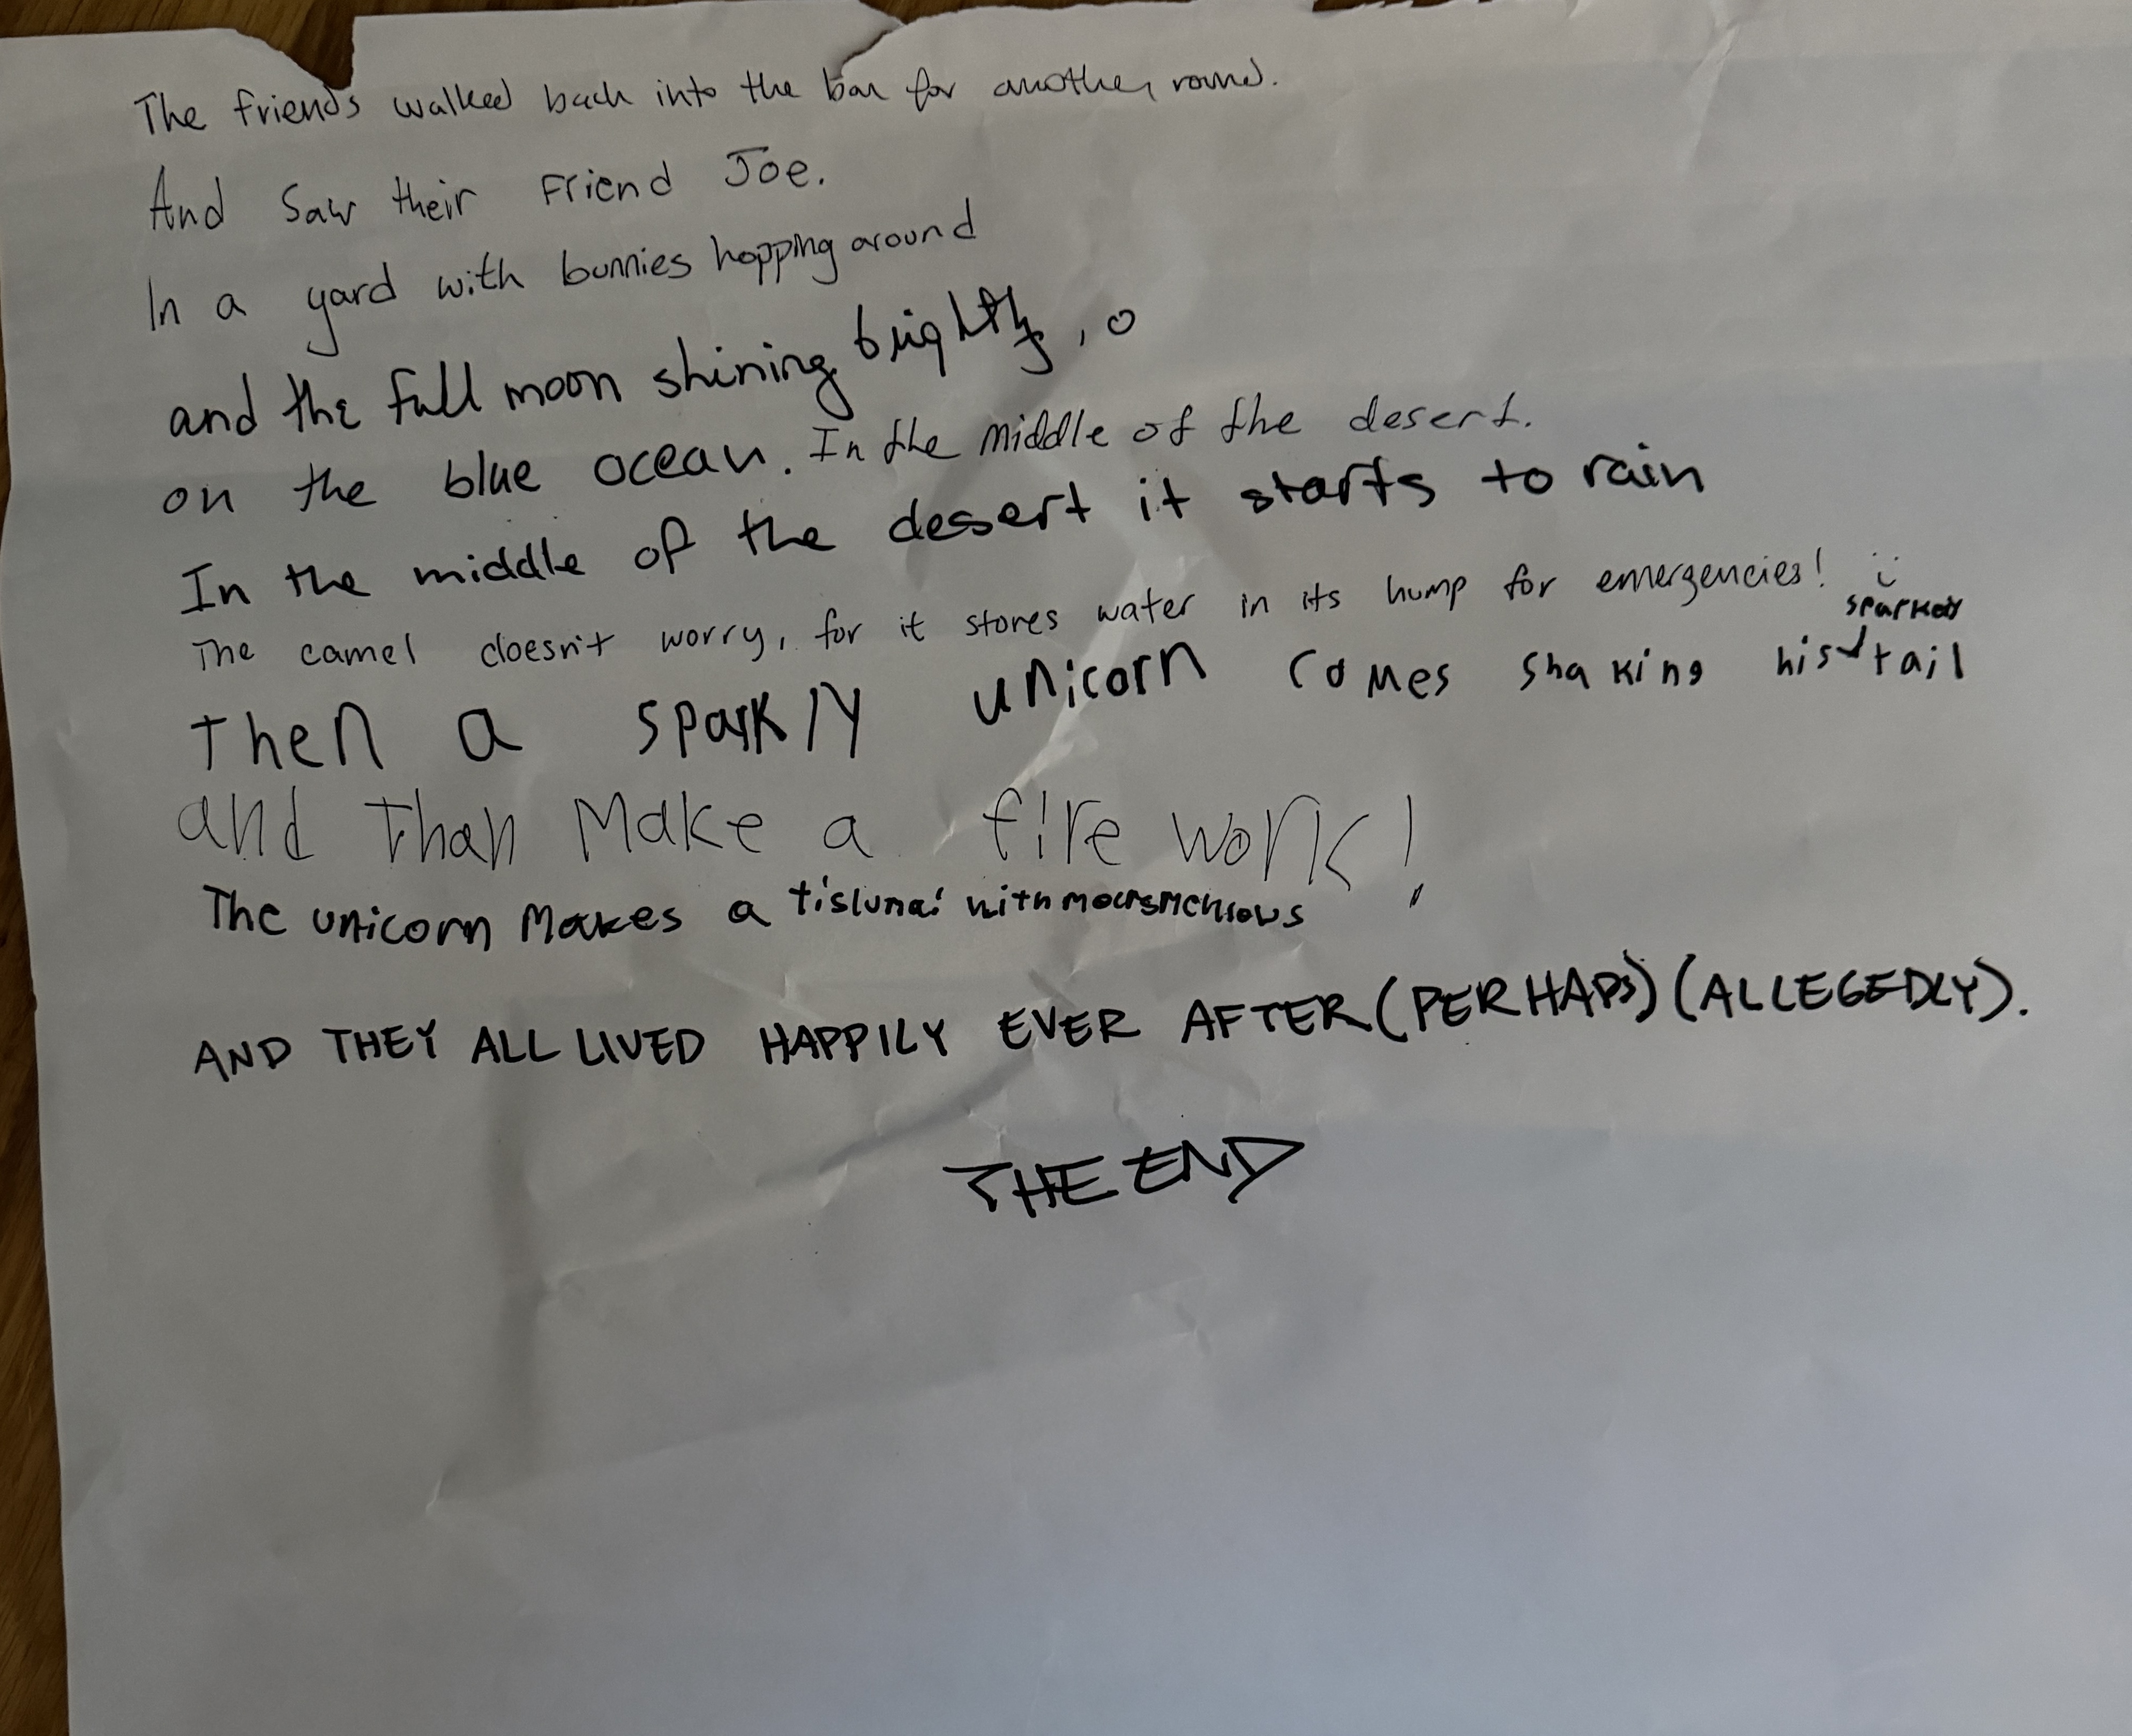 The friends walked back into the bar for another round.
And Saw their Friend Joe.
In a yard with bunnies hopping around
and the full moon shining brightly, o
on the blue ocean. In the middle of the desert.
In the middle of the desert it starts to rain
The camel doesn't worry, for it stores water in its hump for emergencies! :)
then a sparkly unicorn comes shaking his tail
and than make a fire work!
The unicorn makes a with
AND THEY ALL LIVED HAPPILY EVER AFTER (PERHAPS) (ALLEGEDLY).
THE END